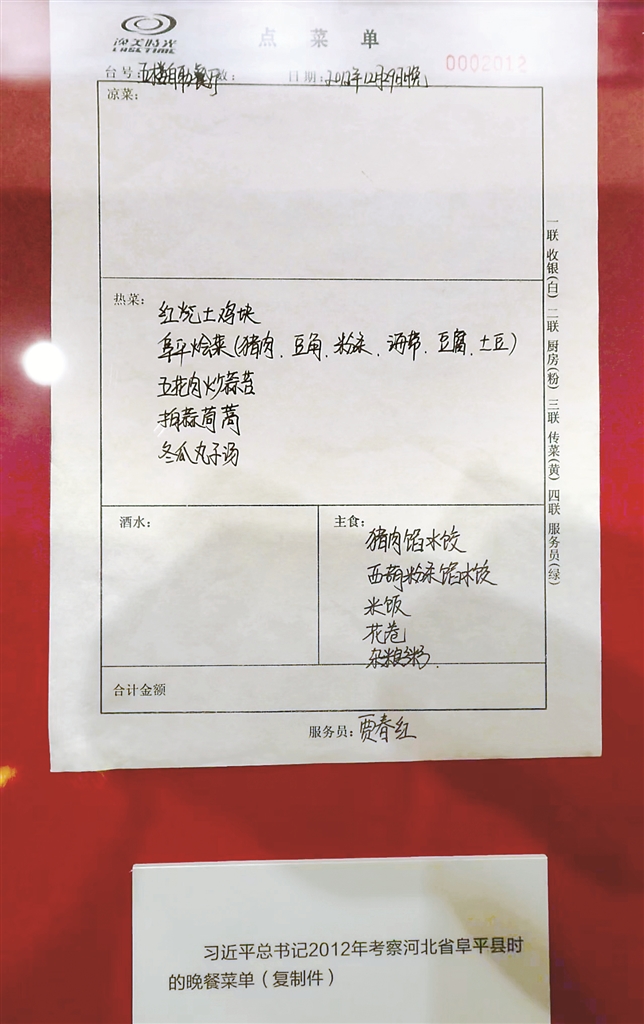 逸美时光
LASETIME
点菜单
0002012
台号：五楼自助餐厅 数： 日期：2012年12月29日晚
凉菜：
热菜：
红烧土鸡块
阜平烩菜(猪肉、豆角、粉条、海带、豆腐、土豆)
五花肉炒蒜苔
拍蒜茼蒿
冬瓜丸子汤
酒水：
主食：
猪肉馅水饺
西葫粉条馅水饺
米饭
花卷
杂粮粥.
合计金额
服务员：贾春红
一联 收银(白) 二联 厨房(粉) 三联 传菜(黄) 四联 服务员(绿)
习近平总书记2012年考察河北省阜平县时
的晚餐菜单（复制件）